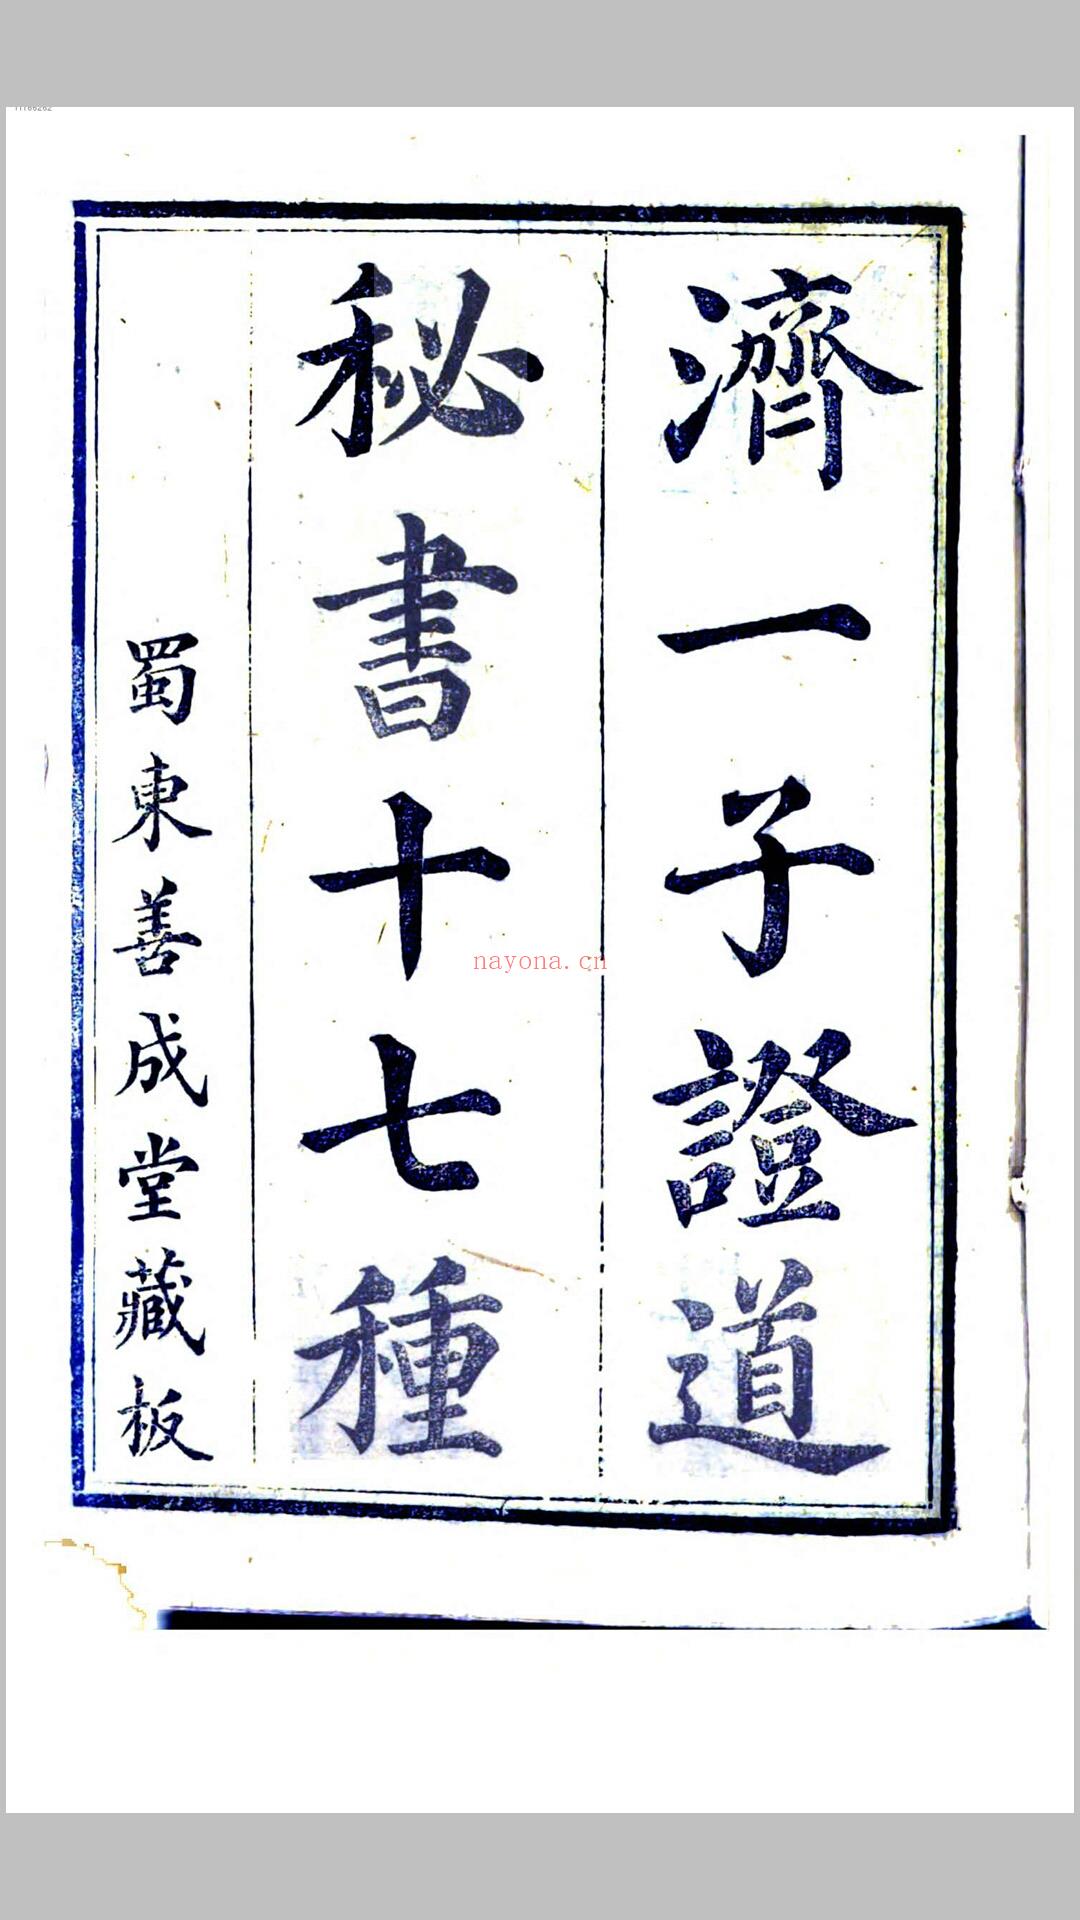 濟一子證道
秘書十七種
蜀東善成堂藏板
nayona.cn